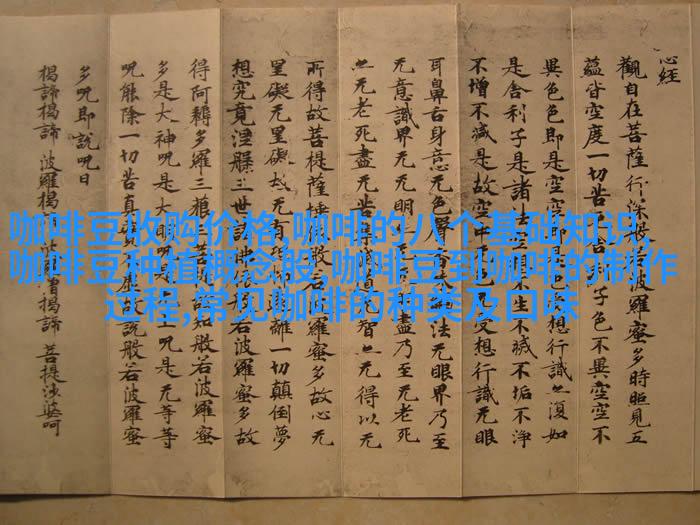 心经
觀自在菩薩行深般若波羅蜜多時照見五
蘊皆空度一切苦子色不異空空不
異色色即是空空是色想行識亦復如
是舍利子是諸法不生不滅不垢不淨
不增不減是故空中色受想行識无眼
耳鼻舌身意无色聲法无眼界乃至
无意識界无无明盡乃至无老死
亦无老死盡无苦智亦无得以无
所得故菩提薩埵般若波羅蜜多故心无
罣礙无罣礙故无有離一切顛倒夢
想究竟涅槃三世諸佛依般若波羅蜜多故
得阿耨多羅三藐三菩提故知般若波羅蜜
多是大神呪是大明呪是上呪是无等等
呪能除一切苦真實不虛故說般若波羅蜜
多呪即說呪曰
揭諦揭諦 波羅揭諦 僧揭諦 菩提婆呵
咖啡豆收购价格,咖啡的八个基础知识,
咖啡豆种植概念股,咖啡豆到咖啡的制作
过程,常见咖啡的种类及口味